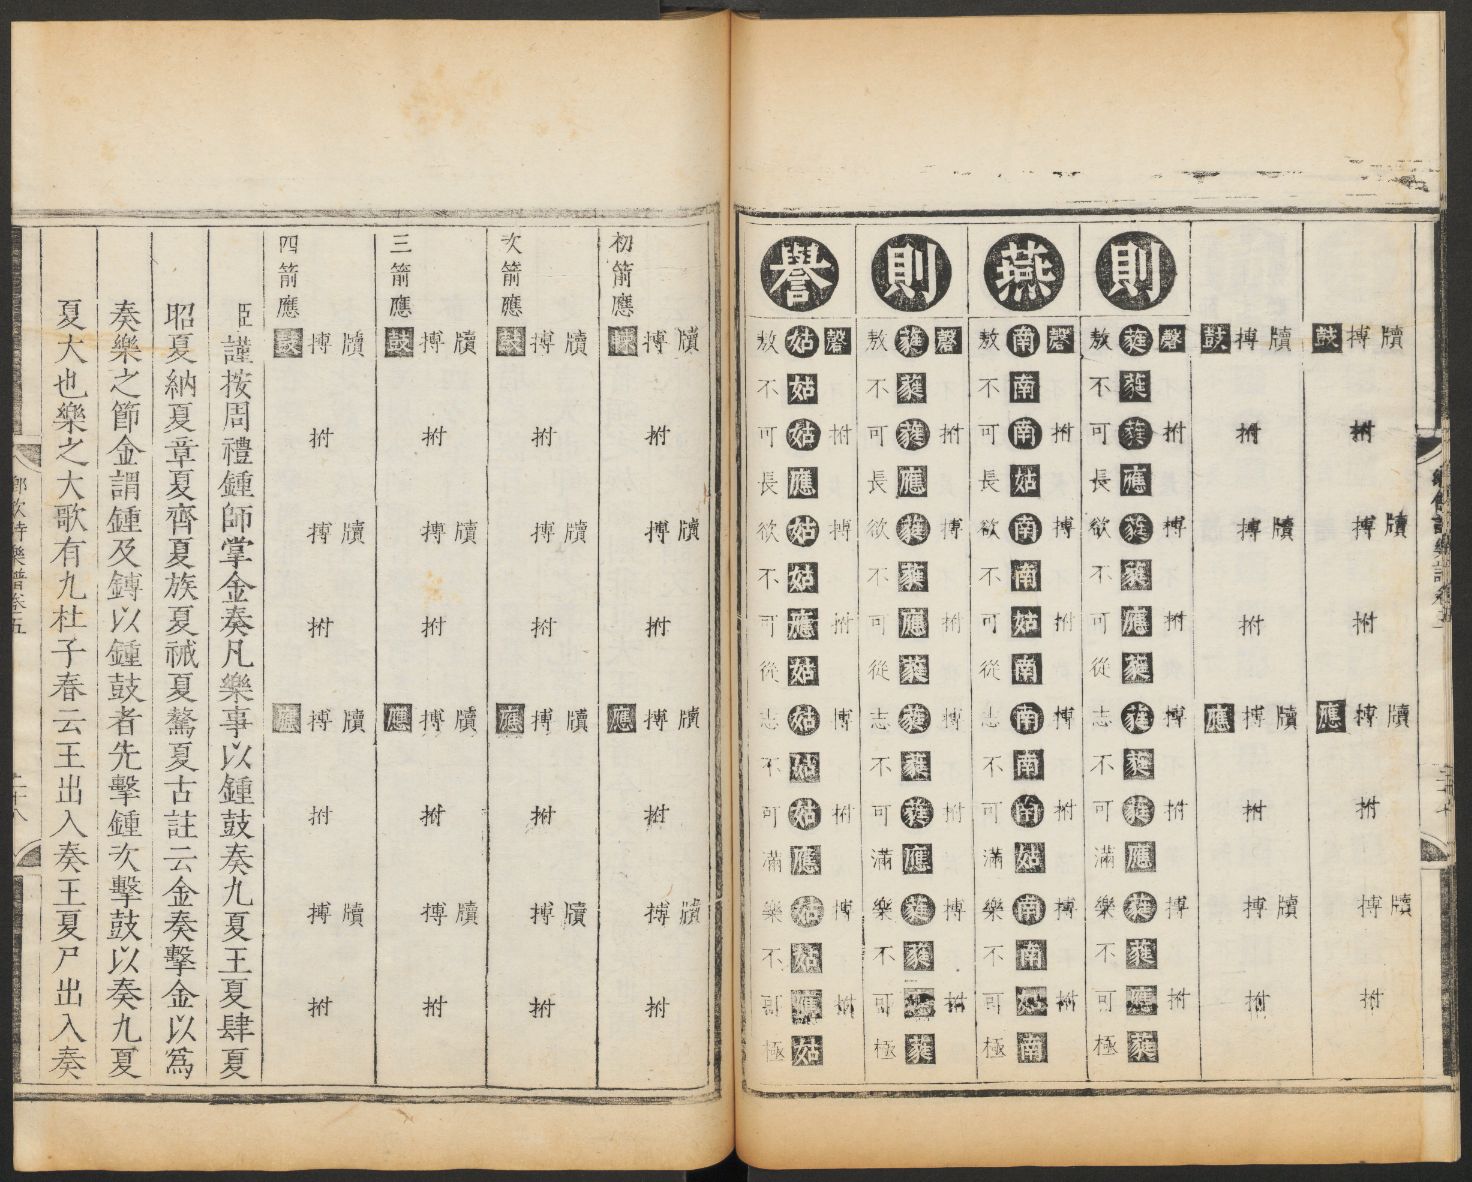 鼓搏牘
拊
搏牘
拊
應搏牘
拊
搏牘
拊
鼓搏牘
拊
搏牘
拊
應搏牘
拊
搏牘
拊
則
敖蕤磬
不蕤
可蕤拊
長應
欲蕤搏
不蕤
可應拊
從蕤
志蕤搏
不蕤
可蕤拊
滿應
樂蕤搏
不蕤
可應拊
極蕤
燕
敖南磬
不南
可南拊
長姑
欲南搏
不南
可姑拊
從南
志南搏
不南
可南拊
滿姑
樂南搏
不南
可姑拊
極南
則
敖蕤磬
不蕤
可蕤拊
長應
欲蕤搏
不蕤
可應拊
從蕤
志蕤搏
不蕤
可蕤拊
滿應
樂蕤搏
不蕤
可拊
極蕤
譽
敖姑磬
不姑
可姑拊
長應
欲姑搏
不姑
可應拊
從姑
志姑搏
不姑
可姑拊
滿應
樂姑搏
不姑
可應拊
極姑
初箭應
搏牘
拊
搏牘
拊
應搏牘
拊
搏牘
拊
次箭應
鼓搏牘
拊
搏牘
拊
應搏牘
拊
搏牘
拊
三箭應
鼓搏牘
拊
搏牘
拊
應搏牘
拊
搏牘
拊
四箭應
鼓搏牘
拊
搏牘
拊
應搏牘
拊
搏牘
拊
臣謹按周禮鍾師掌金奏凡樂事以鍾鼓奏九夏王夏肆夏
昭夏納夏章夏齊夏族夏祴夏驁夏古註云金奏擊金以爲
奏樂之節金謂鍾及鎛以鍾鼓者先擊鍾次擊鼓以奏九夏
夏大也樂之大歌有九杜子春云王出入奏王夏尸出入奏
鄉飲詩樂譜卷五
二十八